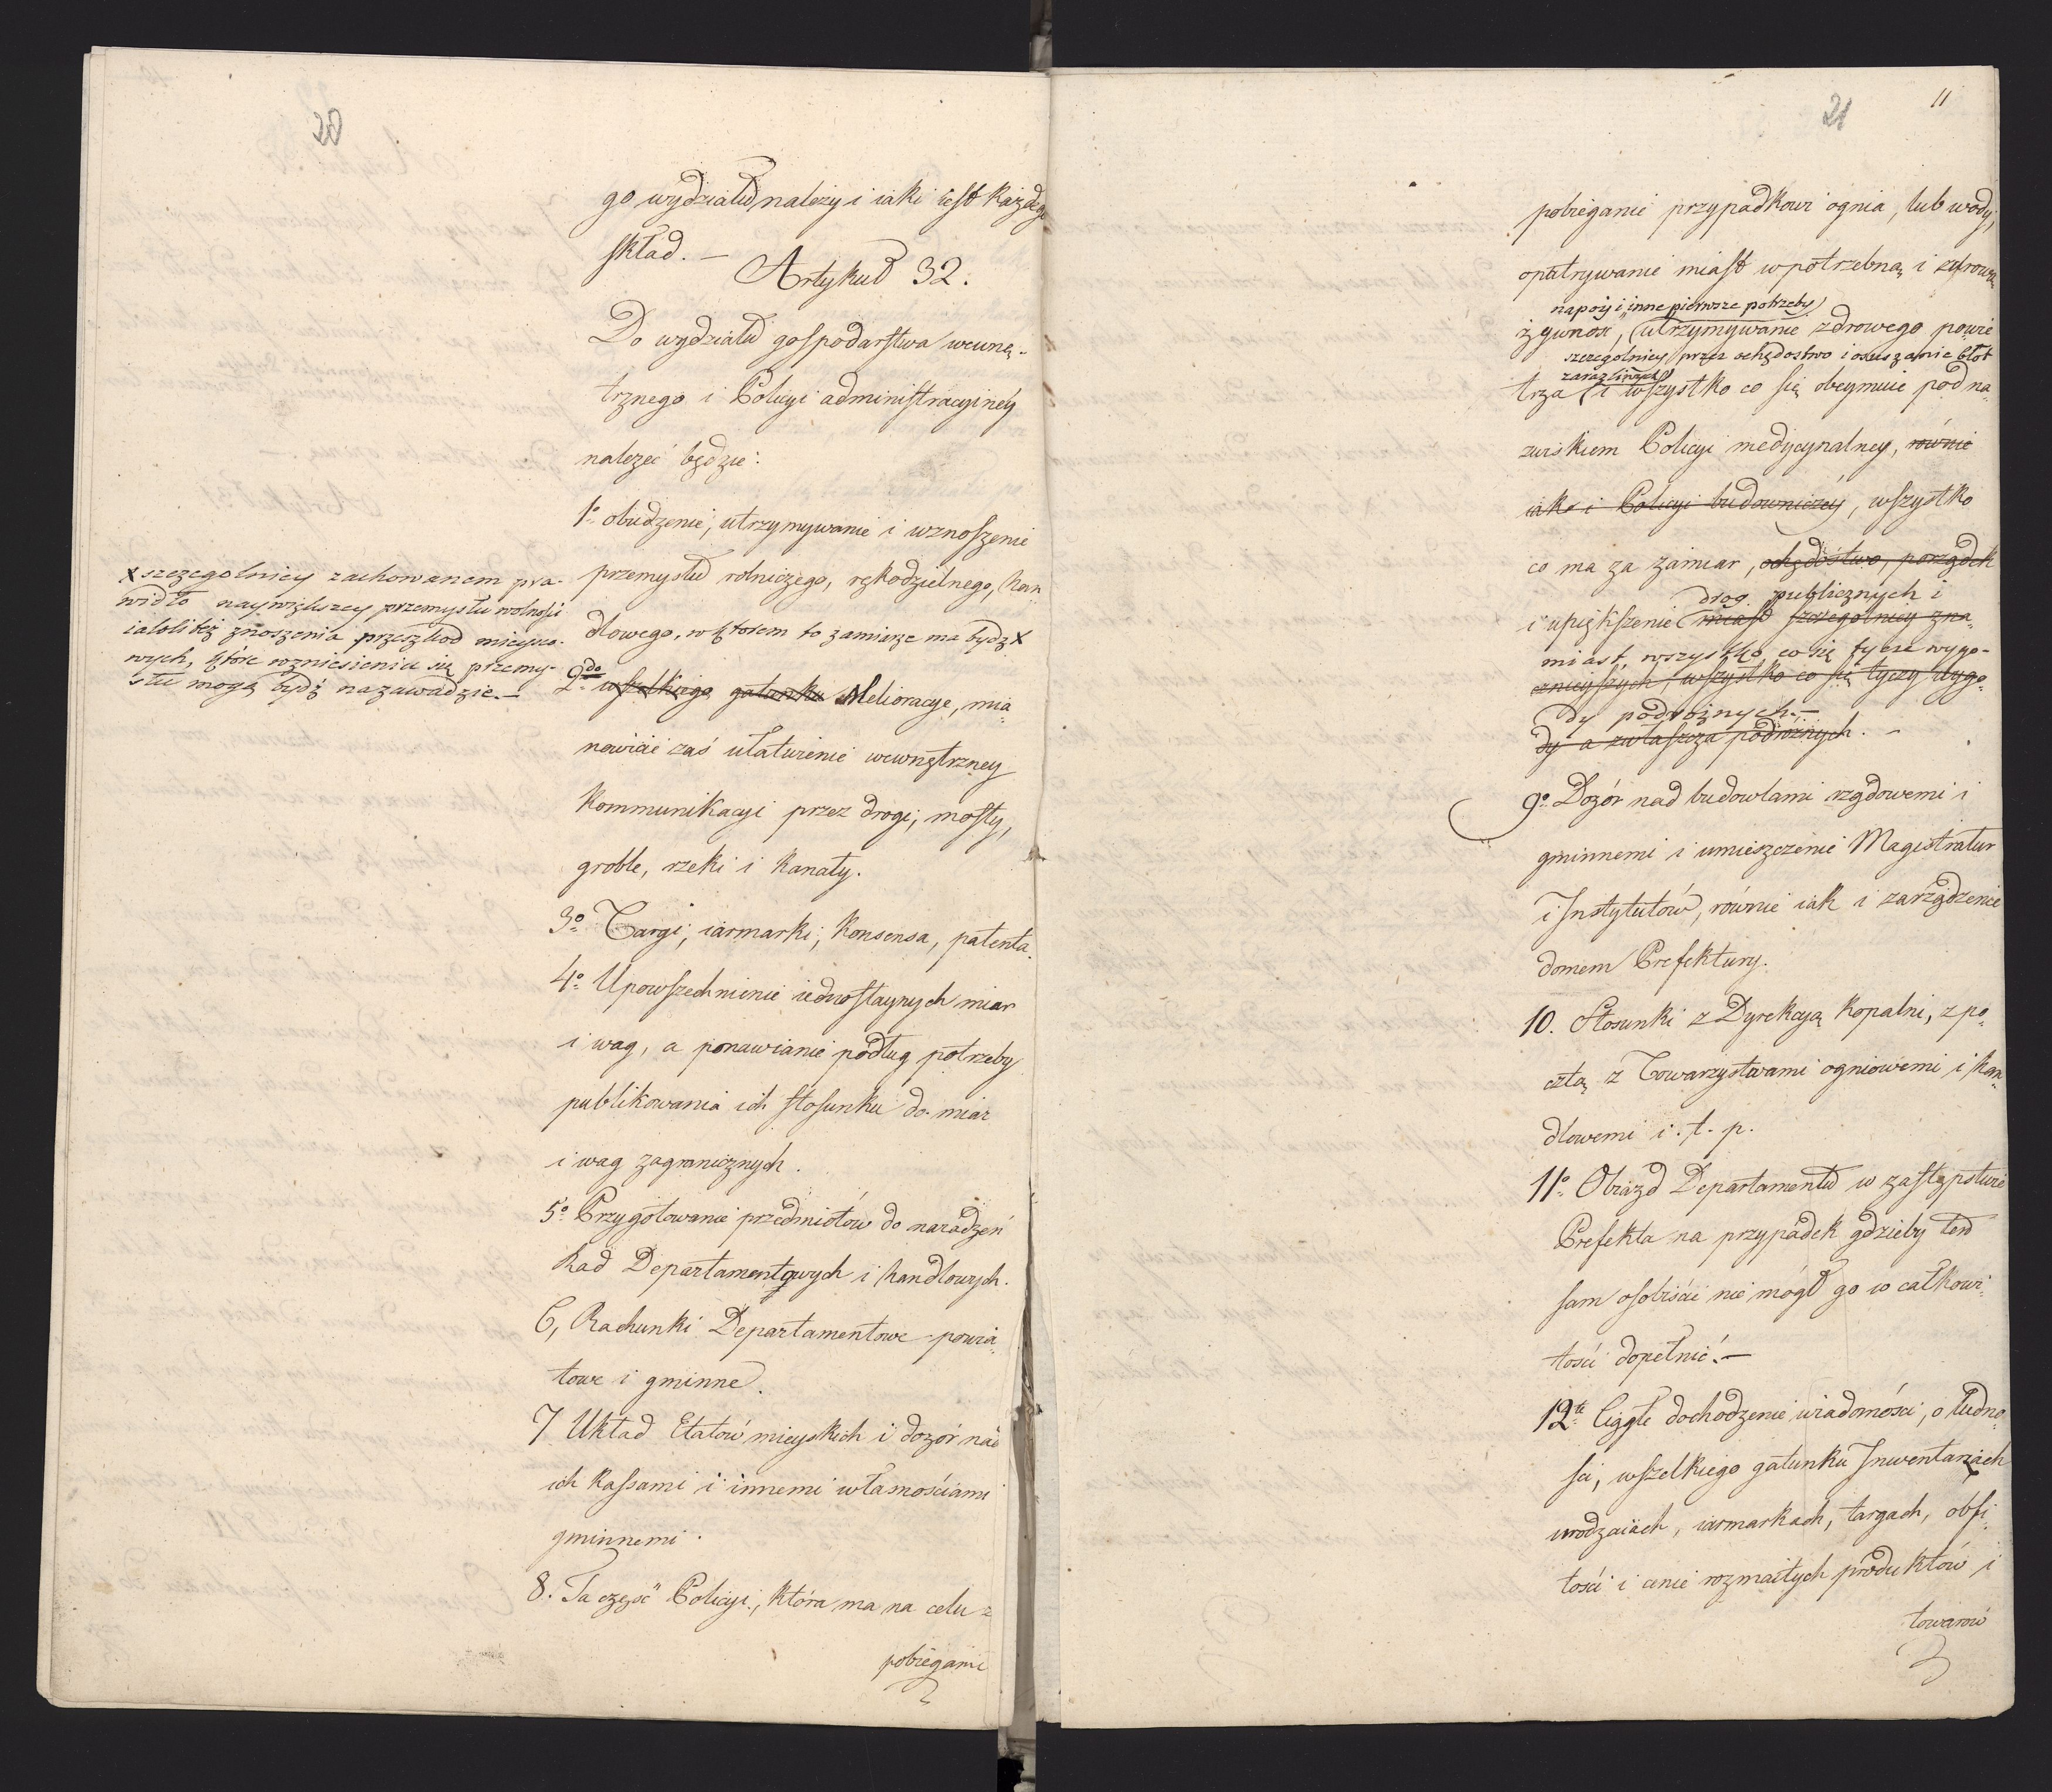 20
go wydziału należy i iaki iest każdego
skład. —
Artykuł 32.
Do wydziału gospodarstwa wewnę-
trznego i Policyi administracyiney
należeć będzie:
1o obudzenie, utrzymywanie i wznoszenie
przemysłu rolniczego, rękodzielnego, han
dlowego, w którem to zamiarze ma bydź x
x szczególniey zachowanem pra-
widło naywiększey przemysłu wolności
iakoli też znoszenia przeszkod mieysco-
wych, które wzniesieniu się przemy-
słu mogą bydź nazawadzie. —
2do wszelkiego gatunku Melioracye, mia-
nowicie zaś ułatwienie wewnętrzney
kommunikacyi przez drogi, mosty,
groble, rzeki i kanały.
3o Targi, iarmarki, konsensa, patenta.
4o Upowszechnienie iednostaynych miar
i wag, a ponawianie podług potrzeby
publikowania ich stosunku do miar
i wag zagranicznych.
5o Przygotowanie przedmiotów do naradzeń
Rad Departamentowych i handlowych.
6, Rachunki Departamentowe powia-
towe i gminne.
7 Układ Etatów mieyskich i dozór nad
ich kassami i innemi własnościami
gminnemi.
8. Ta część Policyi, która ma na celu
pobieganie
21
11
pobieganie przypadkowi ognia, lub wody,
opatrywanie miast w potrzebną i zdrową
napoy i inne pierwsze potrzeby
żywność, utrzymywanie zdrowego powie
szczególniey przez ochędostwo i osuszanie błot
zaraźliwych
trza i wszystko co się obeymuie pod na-
zwiskiem Policyi medycynalney, równie
iak i Policyi budowniczey, wszystko
co ma za zamiar, ochędóstwo, porządek
drog publicznych i
i upiększenie miast szczególniey zna-
miast, wszystko co się tycze wygo-
cznieyszych, wszystko co się tyczy wygo-
dy podróżnych. —
dy a zwłaszcza podróżnych. —
9o Dozór nad budowlami rządowemi i
gminnemi i umieszczenie Magistratur
i Instytutów, równie iak i zarządzenie
domem Prefektury.
10. Stosunki z Dyrekcyą kopalni, z po-
cztą z Towarzystwami ogniowemi i han-
dlowemi i. t. p.
11o Obiazd Departamentu w zastępstwie
Prefekta na przypadek gdzieby ten
sam osobiście nie mógł go w całkowi-
tości dopełnić. —
12te Ciągłe dochodzenie wiadomości, o ludno-
ści, wszelkiego gatunku Inwentarzach
urodzaiach, iarmarkach, targach, obfi-
tości i cenie rozmaitych produktów i
towarów